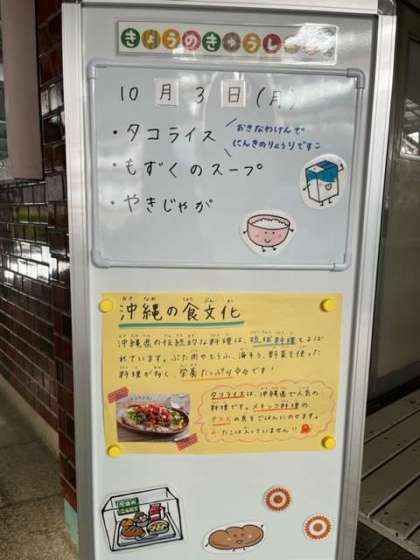 きょうのきゅうしょく
10月3日(月)
・タコライス
おきなわけんで
にんきのりょうりです
・もずくのスープ
・やきじゃが
沖縄の食文化
沖縄県の伝統的な料理は、琉球料理とよば
れています。ぶた肉やとうふ、海そう、野菜を使った
料理が多く、栄養たっぷりです!
タコライスは、沖縄県で人気の
料理です。メキシコ料理の
タコスの具をごはんにのせます。
たこは入っていません!!